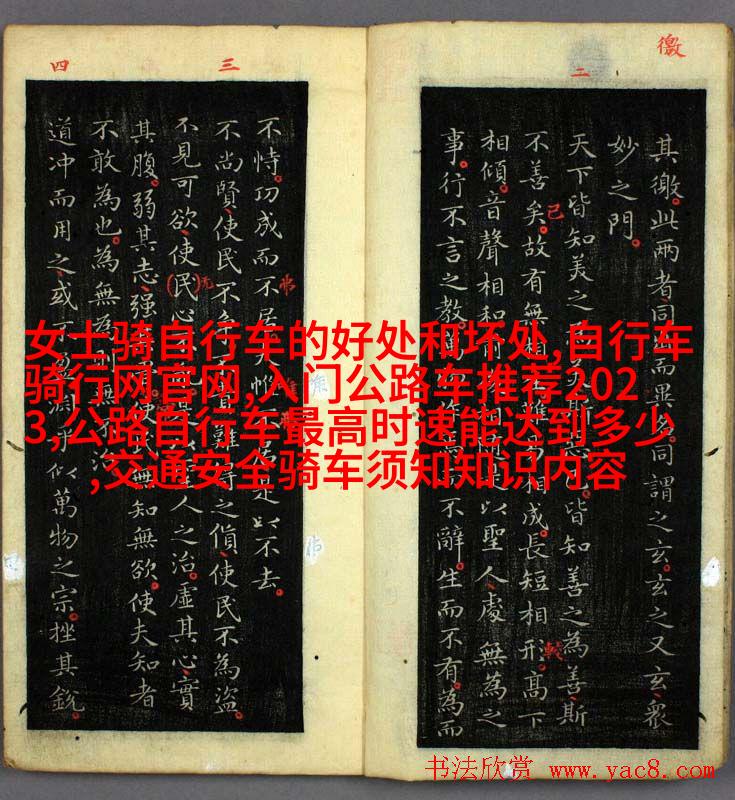 女士骑自行车的好处和坏处,自行车
骑行网官网,入门公路车推荐202
3,公路自行车最高时速能达到多少
,交通安全骑车须知知识内容
徼
二
其徼。此兩者同出而異名。同謂之玄。玄之又玄、眾
妙之門。
天下皆知美之斯已。皆知善之為善斯
不善矣。故有無相難相成。長短相形。高下
已
相傾。音聲相和前相以聖人處無為之
事。行不言之教。萬作而不辭。生而不有。為而
較
三
四
不恃。功成而不居惟不是以不去。
不尚賢、使民不難得之貨、使民不為盜。
不見可欲、使民心人之治。虛其心、實
无
其腹。弱其志、強其使無知無欲。使夫知者
不敢為也。為無為則無不治。
道冲而用之、或不盈淵乎似萬物之宗。挫其銳。
书法欣赏 www.yac8.com